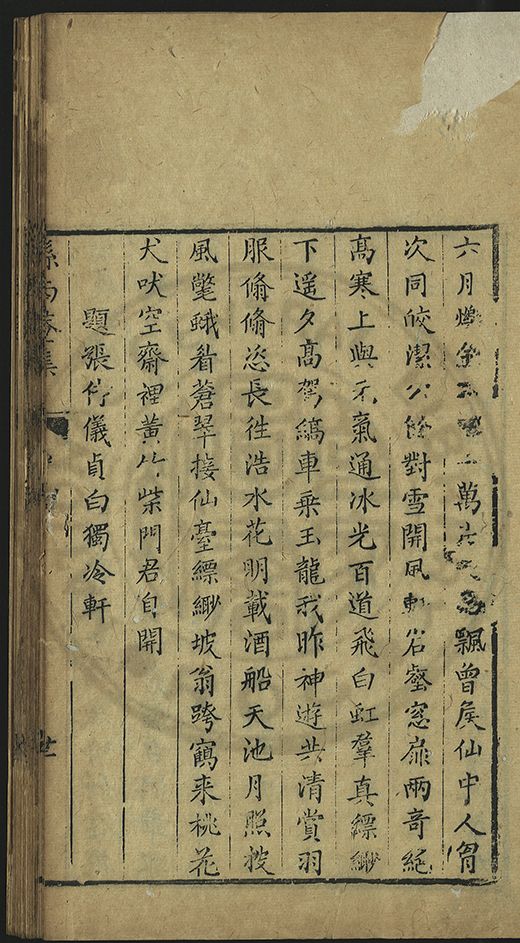 六月爍金萬飄曾矦仙中人胷
次同皎潔公餘對雪開風軒岩壑窓扉兩奇絕
高寒上與元氣通冰光百道飛白虹羣真縹緲
下遥夕高駕縞車乘玉龍我昨神遊共清賞羽
服翛翛恣長往浩水花明載酒船天池月照披
風氅蛾眉蒼翠接仙臺縹緲坡翁跨鶴来桃花
犬吠空齋裡黄竹柴門君自開
題張竹儀貞白獨冷軒
孫西菴集
世